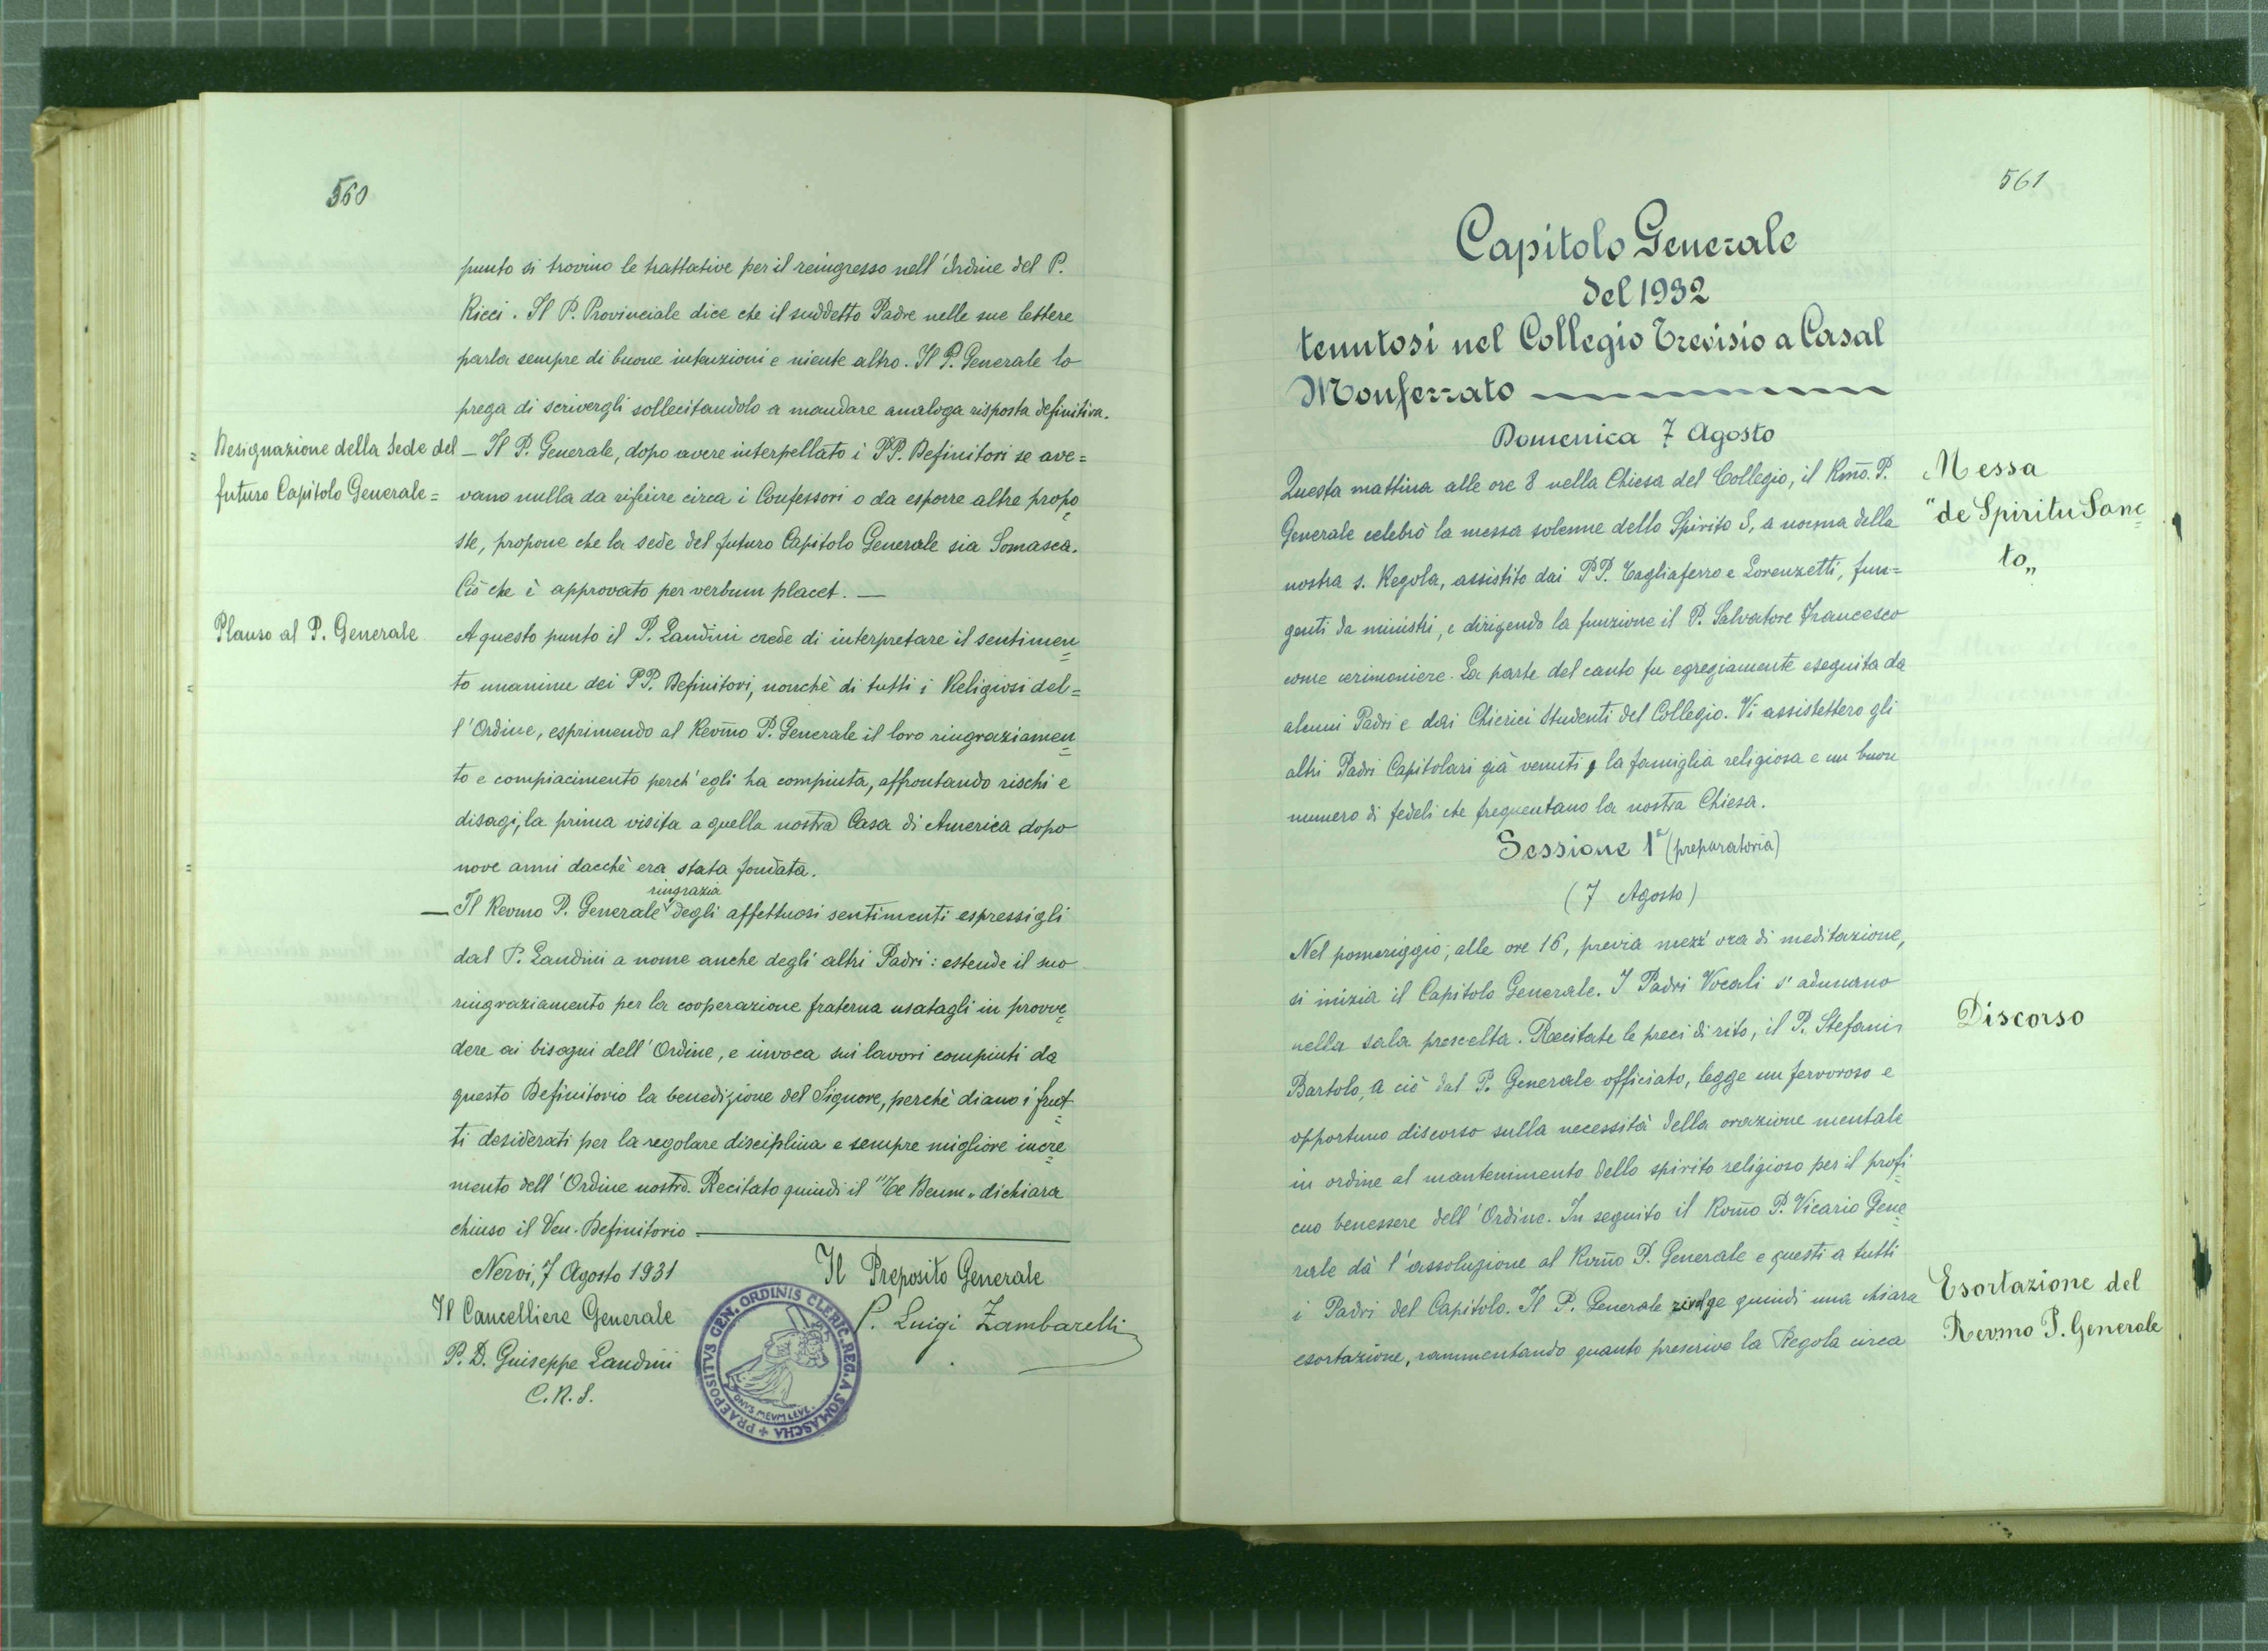 560
punto si trovino le trattative per il reingresso nell'Ordine del P.
Ricci. Il P. Provinciale dice che il suddetto Padre nelle sue lettere
parla sempre di buone intenzioni e niente altro. Il P. Generale lo
prega di scrivergli sollecitandolo a mandare analoga risposta definitiva.
= Designazione della Sede del
futuro Capitolo Generale =
— Il P. Generale, dopo avere interpellato i PP. Definitori se ave=
vano nulla da riferire circa i Confessori o da esporre altre propo=
ste, propone che la sede del futuro Capitolo Generale sia Somasca.
Ciò che è approvato per verbum placet. —
Plauso al P. Generale
A questo punto il P. Landini crede di interpretare il sentimen=
to unanime dei PP. Definitori, nonchè di tutti i Religiosi del=
l'Ordine, esprimendo al Revm̃o P. Generale il loro ringraziamen=
to e compiacimento perch'egli ha compiuta, affrontando rischi e
disagi, la prima visita a quella nostra Casa di America dopo
nove anni dacchè era stata fondata.
ringrazia
— Il Revmo P. Generale degli affettuosi sentimenti espressigli
dal P. Landini a nome anche degli altri Padri: estende il suo
ringraziamento per la cooperazione fraterna usatagli in provve=
dere ai bisogni dell'Ordine, e invoca sui lavori compiuti da
questo Definitorio la benedizione del Signore, perchè diano i frut=
ti desiderati per la regolare disciplina e sempre migliore incre=
mento dell'Ordine nostro. Recitato quindi il "Te Deum„ dichiara
chiuso il Ven. Definitorio —
Nervi, 7 Agosto 1931
Il Preposito Generale
Il Cancelliere Generale
P. Luigi Zambarelli
P. D. Giuseppe Landini
C.R.S.
+ PRAEPOSITVS GEN. ORDINIS CLERIC. REG. A SOMASCHA
ONVS MEVM LEVE
561
Capitolo Generale
del 1932
tenutosi nel Collegio Trevisio a Casal
Monferrato
Domenica 7 Agosto
Messa
"de Spiritu Sanc=
to„
Questa mattina alle ore 8 nella Chiesa del Collegio, il Rm̃o. P.
Generale celebrò la messa solenne dello Spirito S, a norma della
nostra s. Regola, assistito dai PP. Tagliaferro e Lorenzetti, fun=
genti da ministri, e dirigendo la funzione il P. Salvatore Francesco
come cerimoniere. La parte del canto fu egregiamente eseguita da
alcuni Padri e dai Chierici Studenti del Collegio. Vi assistettero gli
altri Padri Capitolari già venuti, la famiglia religiosa e un buon
numero di fedeli che frequentano la nostra Chiesa.
Sessione 1ª (preparatoria)
(7 Agosto)
Nel pomeriggio, alle ore 16, previa mezz'ora di meditazione,
si inizia il Capitolo Generale. I Padri Vocali s'adunano
nella sala prescelta. Recitate le preci di rito, il P. Stefani
Discorso
Bartolo, a ciò dal P. Generale officiato, legge un fervoroso e
opportuno discorso sulla necessità della orazione mentale
in ordine al mantenimento dello spirito religioso per il profi=
cuo benessere dell'Ordine. In seguito il Rvm̃o P. Vicario Gene=
rale dà l'assoluzione al Rvm̃o P. Generale e questi a tutti
i Padri del Capitolo. Il P. Generale rivolge quindi una chiara
esortazione, rammentando quanto prescrive la Regola circa
Esortazione del
Revmo P. Generale